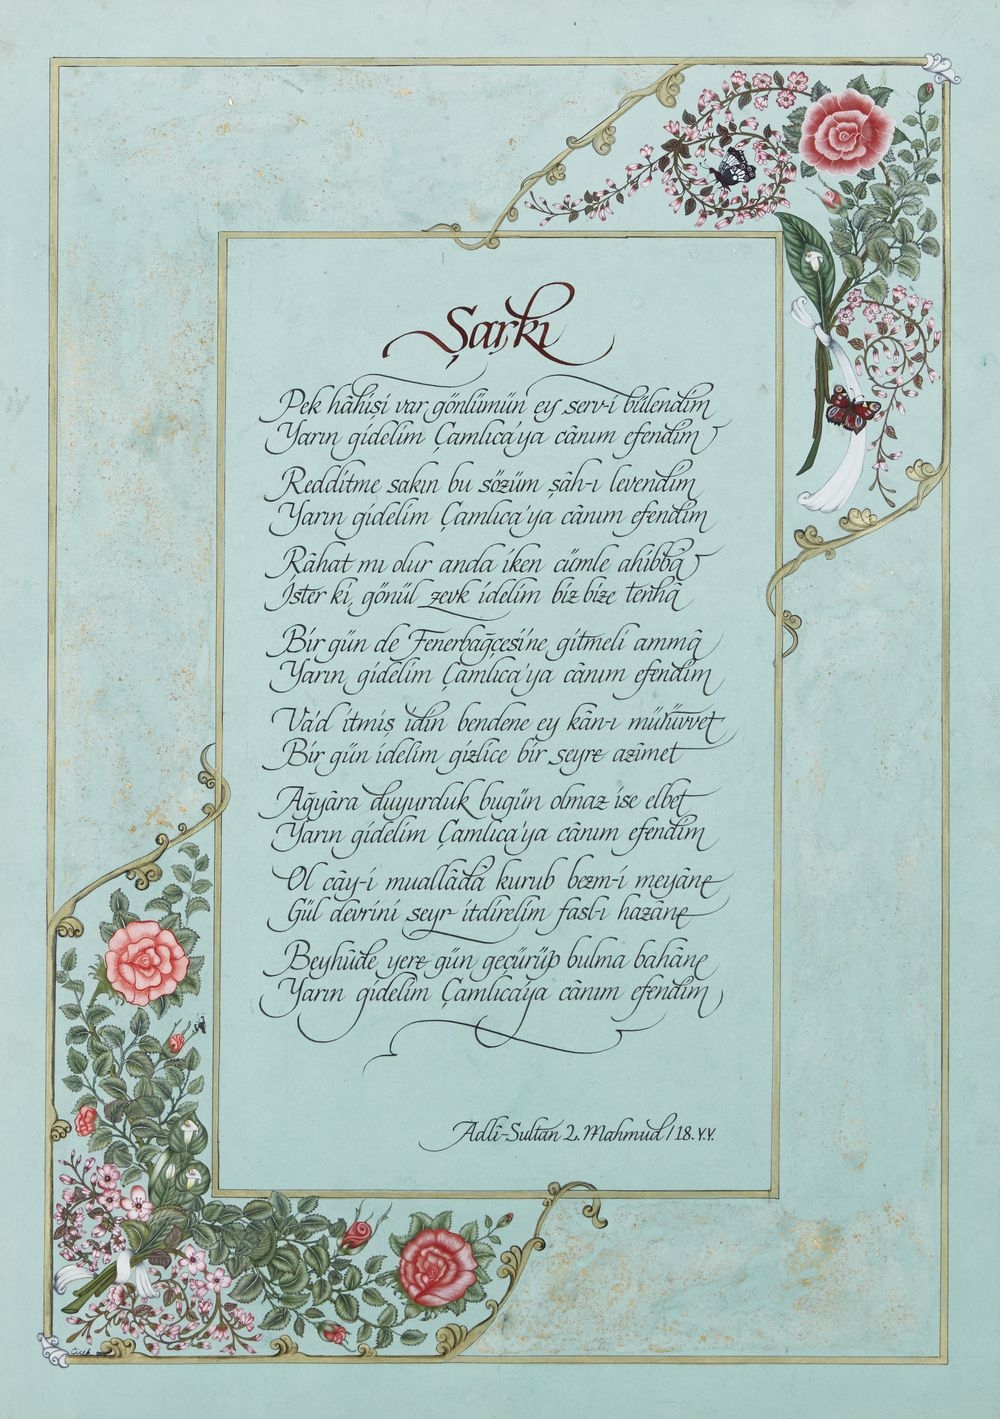 Şarkı
Pek hâhişi var gönlümün ey serv-i bülendim
Yarın gidelim Çamlıca'ya cânım efendim
Redditme sakın bu sözüm şâh-ı levendim
Yarın gidelim Çamlıca'ya cânım efendim
Râhat mı olur anda iken cümle ahibbâ
İster ki gönül zevk idelim biz bize tenhâ
Bir gün de Fenerbağçesi'ne gitmeli ammâ
Yarın gidelim Çamlıca'ya cânım efendim
Va'd itmiş idin bendene ey kân-ı mürüvvet
Bir gün idelim gizlice bir seyre azîmet
Ağyâra duyurduk bugün olmaz ise elbet
Yarın gidelim Çamlıca'ya cânım efendim
Ol cây-i muallâdâ kurub bezm-i meyâne
Gül devrini seyr itdirelim fasl-ı hazâne
Beyhûde yere gün geçürüp bulma bahâne
Yarın gidelim Çamlıca'ya cânım efendim
Adlî-Sultan 2. Mahmud / 18. Y.Y.